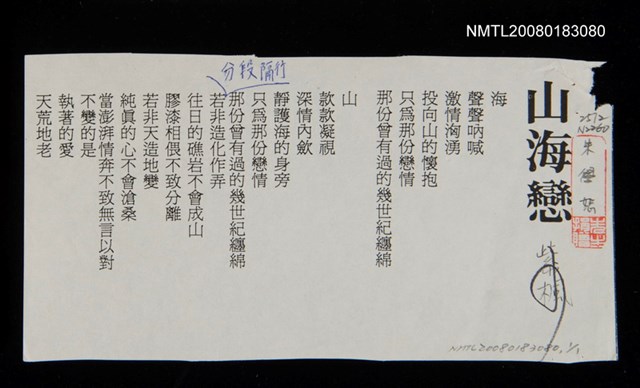 NMTL20080183080
山海戀
紫楓
朱學恕
海
聲聲吶喊
激情洶湧
投向山的懷抱
只爲那份戀情
那份曾有過的幾世紀纏綿
山
款款凝視
深情內斂
靜護海的身旁
只爲那份戀情
分段隔行
那份曾有過的幾世紀纏綿
若非造化作弄
往日的礁岩不會成山
膠漆相偎不致分離
若非天造地變
純眞的心不會滄桑
當澎湃情奔不致無言以對
不變的是
執著的愛
天荒地老
NMTL20080183080. 1/1